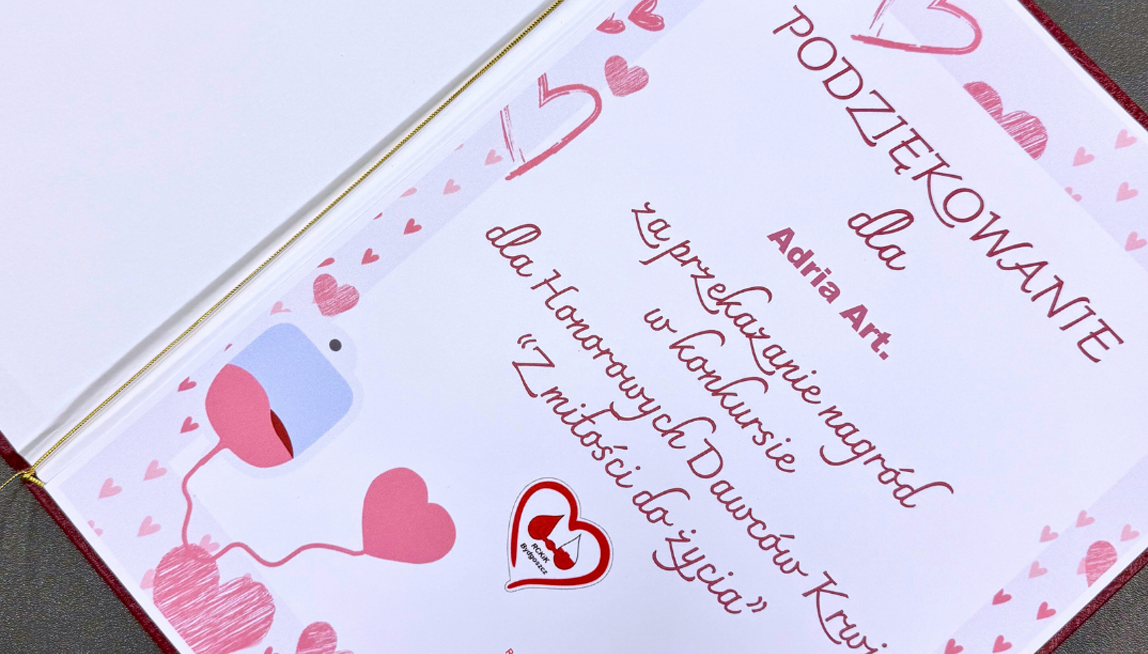 PODZIĘKOWANIE
dla
Adria Art.
za przekazanie nagród
w konkursie
dla Honorowych Dawców Krwi
“Z miłości do życia”
RCKiK
Bydgoszcz